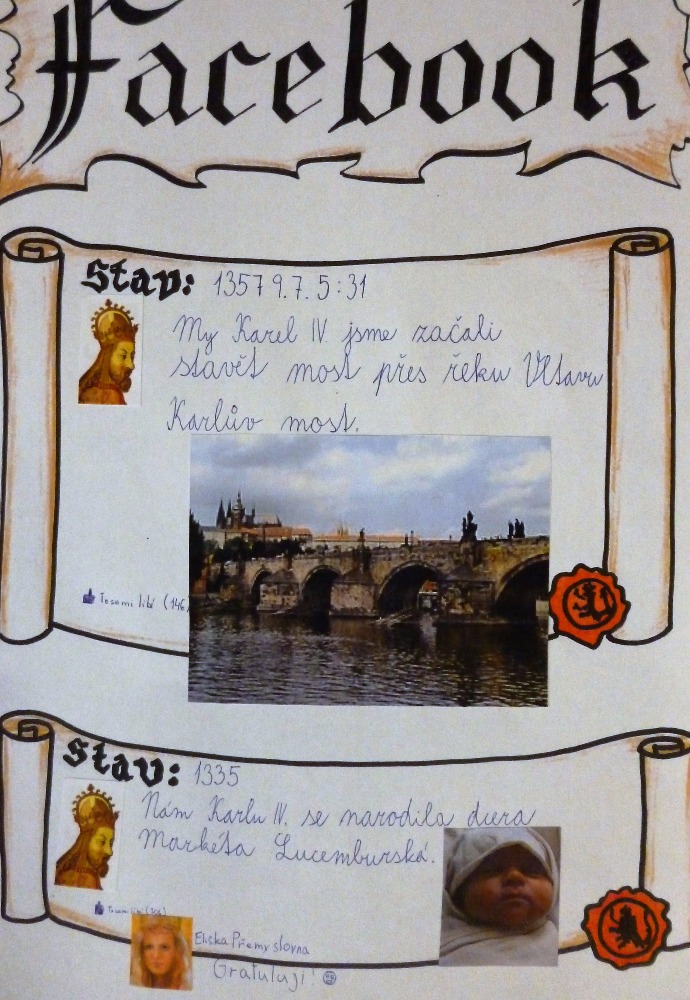 Facebook
Stav: 1357 9.7. 5:31
My Karel IV. jsme začali
stavět most přes řeku Vltavu
Karlův most.
To se mi líbí (146
Stav: 1335
Nám Karlu IV. se narodila dcera
Markéta Lucemburská.
To se mi líbí
Eliška Přemyslovna
Gratuluji! ☺